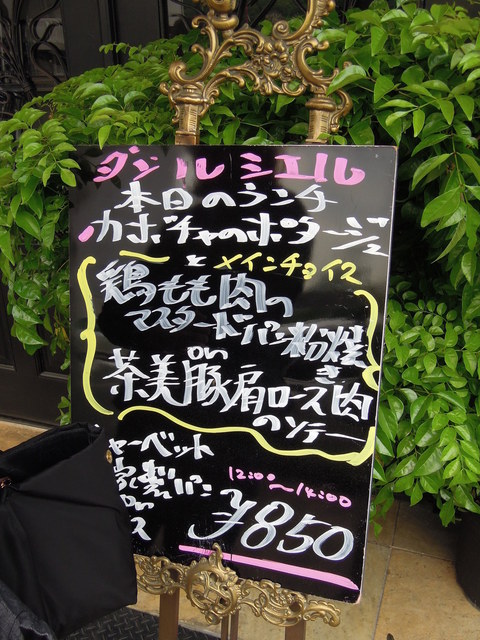 ダジルシエル
本日のランチ
カボチャのポタージュ
と メインチョイス
鶏もも肉の
マスタードパン粉焼き
or
茶美豚肩ロース肉
のソテー
ャーベット
家製パン
or
ス
12:00～14:00
¥850